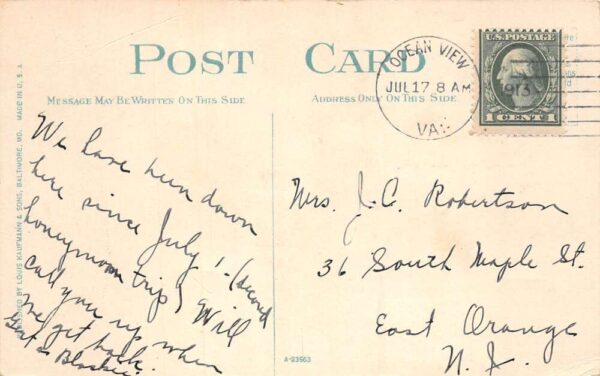 POST CARD
MESSAGE MAY BE WRITTEN ON THIS SIDE
ADDRESS ONLY ON THIS SIDE
OCEAN VIEW
JUL 17 8 AM
1913
VA.
U.S. POSTAGE
1 CENT 1
We have been down
here since July 1 - (second
honeymoon trip) Will
call you up when
we get back.
Mrs. J. C. Robertson
36 South Maple St.
East Orange
N. J.
PUBLISHED BY LOUIS KAUFMANN & SONS, BALTIMORE, MD. MADE IN U. S. A.
A-93563